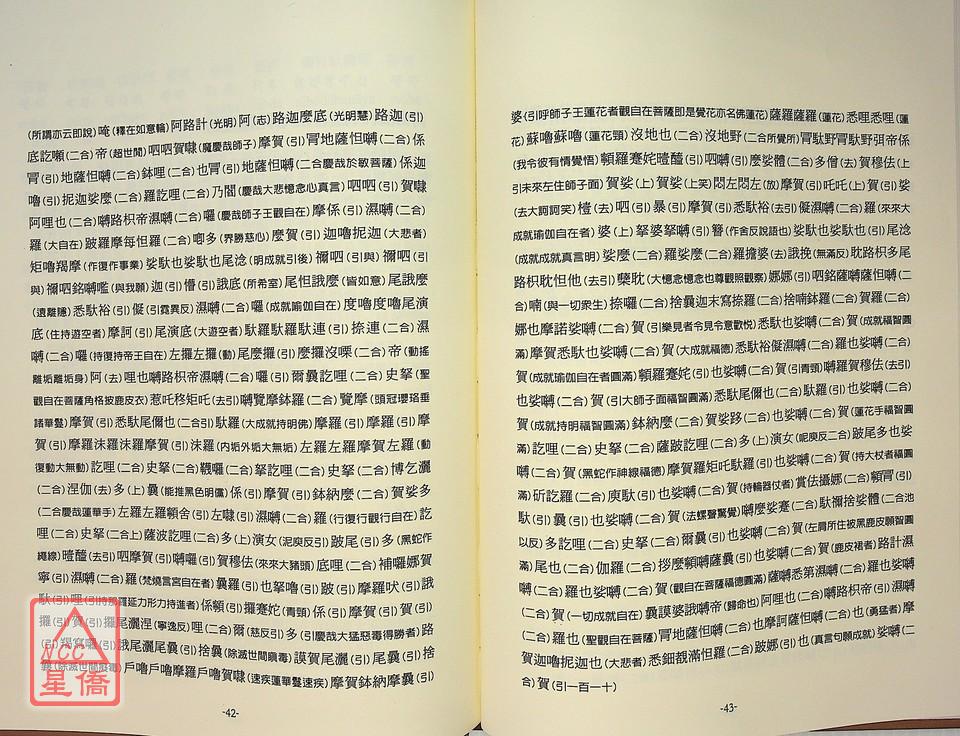 (所謂亦云即說)唵(釋在如意輪)阿路計(光明)阿(志)路迦麼底(光明慧)路迦(引)
底訖嚩(二合)帝(超世間)呬呬賀㘑(魔慶哉師子)摩賀(引)地薩怛嚩(二合)係
(引)地薩怛嚩(二合)鉢哩(二合)也(引)地薩怛嚩(二合慶哉於敏菩薩)係迦
嚕(引)抳迦娑麼(二合)羅訖哩(二合)乃閻(慶哉大悲憶念心真言)呬呬(引)賀㘑
阿哩也(二合)嚩路枳帝濕嚩(二合)囉(慶哉師子王觀自在)摩係(引)濕嚩(二合)
羅(大自在)跛羅摩每怛羅(二合)唧多(界勝慈心)麼賀(引)迦嚕抳迦(大悲者)
矩嚕羯摩(作復作事業)娑馱也娑馱也尾淰(明成就引後)禰呬(引)與禰呬(引)
與)禰呬銘嚩嚂(與我願)迦(引)懵(引)誐底(所希室)尾怛誐麼(皆如意)尾誐麼
(遠離隱)悉馱裕(引)儗(引霓異反)濕嚩(二合)囉(成就瑜伽自在)度嚕度嚕尾演
底(住持遊空者)摩訶(引)尾演底(大遊空者)馱羅馱羅馱連(引)捺連(二合)濕
嚩(二合)囉(持復持帝王自在)左攞左攞(動)尾麼攞(引)麼攞沒㗚(二合)帝(動搖
離垢離垢身)阿(去)哩也嚩路枳帝濕嚩(二合)囉(引)爾曩訖哩(二合)史拏(聖
觀自在菩薩角格披鹿皮衣)惹吒移矩吒(去引)嚩覽摩鉢羅(二合)覽摩(頭冠瓔珞垂
諸華鬘)摩賀(引)悉馱尾爾也(二合引)馱羅(大成就持明佛)摩羅(引)摩羅(引)摩
賀(引)摩羅沬羅沬羅摩賀(引)沬羅(內垢外垢大無垢)左羅左羅摩賀左羅(動
復動大無動)訖哩(二合)史拏(二合)韈囉(二合)拏訖哩(二合)史拏(二合)博乞灑
(二合)涅伽(去)多(上)曩(能推黑色明儻)係(引)摩賀(引)鉢納麼(二合)賀娑多
(二合慶哉蓮華手)左羅左羅顊舍(引)左㘑(引)濕嚩(二合)羅(行復行觀行自在)訖
哩(二合)史拏(二合上)薩波訖哩(二合)多(上)演女(泥庾反引)跛尾(引)多(黑蛇作
繩線)曀醯(去引)呬摩賀(引)嚩囉(引)賀穆佉(來來大豬頭)底哩(二合)補囉娜賀
寧(引)濕嚩(二合)羅(焚燒言宮自在者)曩羅(引)也拏嚕(引)跛(引)摩羅吠(引)誐
馱(引)哩(引持那羅延力形力持進者)係顊(引)攞蹇姹(青頸)係(引)摩賀(引)賀(引)
攞(引)賀(引)攞尾灑涅(寧逸反)哩(二合)爾(慈反引)多(引慶哉大猛惡毒得勝者)路
(引)羯寫囉(引)誐尾灑尾曩(引)捨曩(除滅世間瞋毒)謨賀尾灑(引)尾曩(引)捨
曩(除滅世間癡毒)戶嚕戶嚕摩羅戶嚕賀㘑(速疾蓮華鬘速疾)摩賀鉢納摩曩(引)
-42-
婆(引呼師子王蓮花者觀自在菩薩即是覺花亦名佛蓮花)薩羅薩羅(蓮花)悉哩悉哩(蓮
花)蘇嚕蘇嚕(蓮花頸)沒地也(二合)沒地野(二合所覺所)馱野馱野弭帝係
(我令彼有情覺悟)顊羅蹇姹曀醯(引)呬嚩(引)麼娑體(二合)多僧(去)賀穆佉(上
引未來左住師子面)賀娑(上)賀娑(上笑)悶左悶左(放)摩賀(引)吒吒(上)賀(引)娑
(去大訶訶笑)㯉(去)呬(引)暴(引)摩賀(引)悉馱裕(去引)儗濕嚩(二合)羅(來來大
成就瑜伽自在者)婆(上)拏婆拏嚩(引)簪(作舍反說語也)娑馱也娑馱也(引)尾淰
(成就成就真言明)娑麼(二合)羅娑麼(二合)羅擔婆(去)誐挽(無滿反)耽路枳多尾
路枳耽怛他(去引)蘖耽(大憶念憶念也尊觀照觀察)娜娜(引)呬銘薩嚩薩怛嚩(二
合)喃(與一切衆生)捺囉(二合)捨曩迦末寫捺羅(二合)捨喃鉢羅(二合)賀羅(二合)
娜也摩諾娑嚩(二合)賀(引樂見者令見令意歡悅)悉馱也娑嚩(二合)賀(成就福智圓
滿)摩賀悉馱也娑嚩(二合)賀(大成就福德)悉馱裕儗濕嚩(二合)羅也娑嚩(二合)
賀(成就瑜伽自在者圓滿)顊羅蹇姹(引)也娑嚩(二合)賀(引青頸)嚩羅賀穆佉(去引)
也娑嚩(二合)賀(引大師子面福智圓滿)悉馱尾爾也(二合)馱羅(引)也娑嚩(二合)
賀(成就持明福智圓滿)鉢納麼(二合)賀娑跢(二合)也娑嚩(二合)賀(蓮花手福智圓
滿)訖哩(二合)史拏(二合)薩跛訖哩(二合)多(上)演女(呢庾反二合)跛尾多也娑
嚩(二合)賀(黑蛇作神線福德)摩賀羅矩吒馱羅(引)也娑嚩(二合)賀(持大杖者福圓
滿)斫訖羅(二合)庾馱(引)也娑嚩(二合)賀(持輪器仗者)賞佉攝娜(二合)顊(引)
馱(引)曩(引)也娑嚩(二合)賀(法螺聲驚覺)嚩麼娑蹇(二合)馱禰捨娑體(二合池
以反)多訖哩(二合)史拏(二合)爾曩(引)也娑嚩(二合)賀(左肩所住被黑鹿皮願智圓
滿)尾也(二合)伽羅(二合)拶麼顊嚩薩曩(引)也娑嚩(二合)賀(鹿皮裙者)路計濕
嚩(二合)羅也娑嚩(二合)賀(觀自在菩薩福德圓滿)薩嚩悉第濕嚩(二合)羅也娑嚩
(二合)賀(一切成就自在)曩謨婆誐嚩帝(歸命也)阿哩也(二合)嚩路枳帝(引)濕嚩
(二合)羅也(聖觀自在菩薩)地薩怛嚩(二合)也摩訶薩怛嚩(二合)也(勇猛者)摩
賀迦嚕抳迦也(大悲者)悉鈿覩滿怛羅(二合)跛娜(引)也(真言句願成就)娑嚩(二
合)賀(引一百一十)
-43-
NCC
星僑